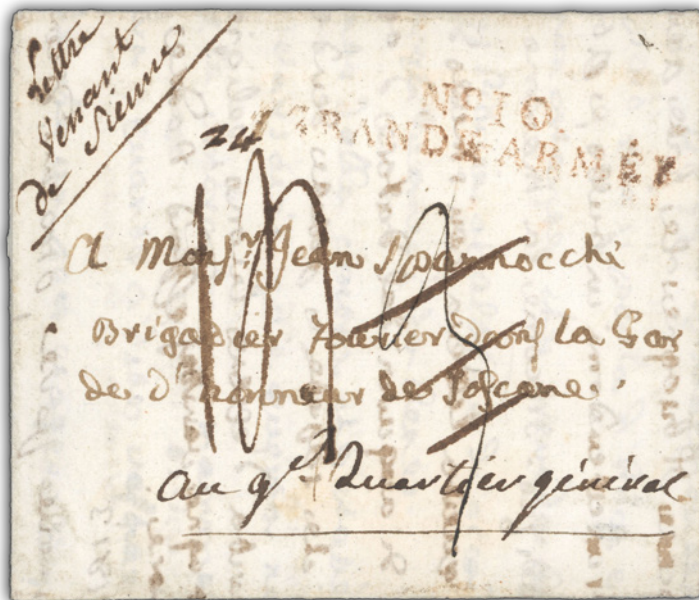 Lettre
venant
de Sienne
No. 10.
GRANDE ARMÉE
24
A Monsr. Jean Spannocchi
Brigadier fourier dans la Gar
de d'honneur de Toscane.
au gd. Quartier général